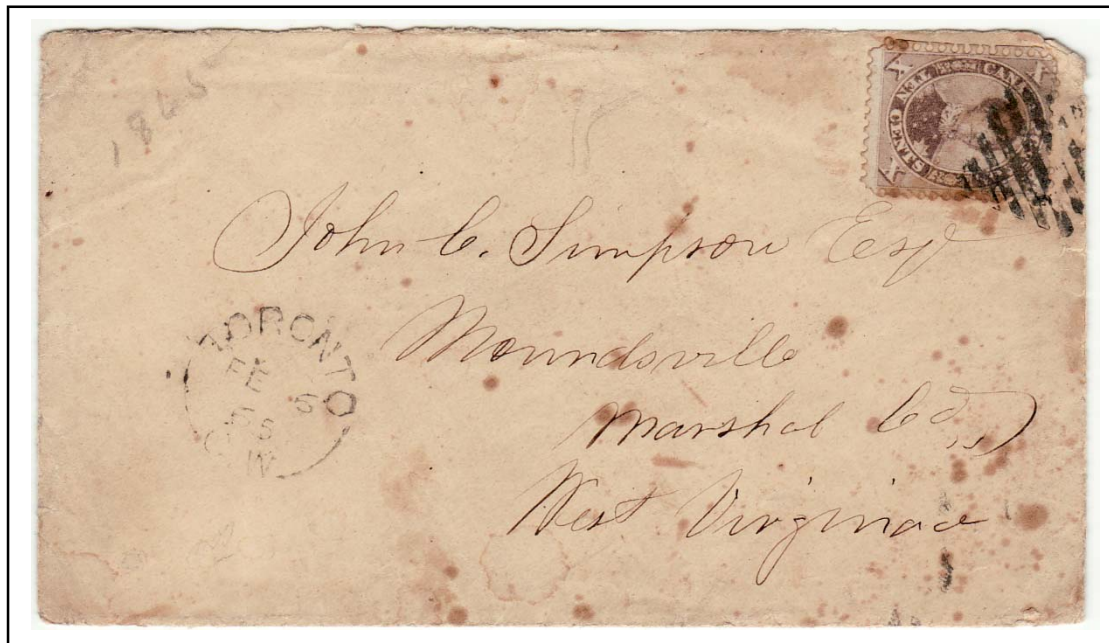 1865
TEN CENTS
CANA
X X X
John C. Simpson Esqr
Moundsville
Marshal Co
West Virginia
TORONTO
FE 6
65
C.W